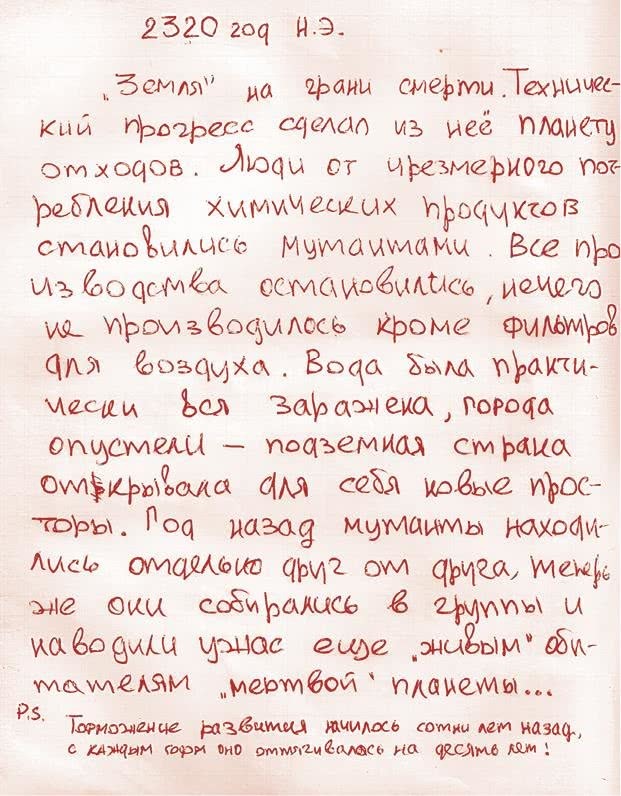 2320 год Н.Э.
„Земля" на грани смерти. Техничес-
кий прогресс сделал из неё планету
отходов. Люди от чрезмерного пот-
ребления химических продуктов
становились мутантами. Все про
изводства остановились, нечего
не производилось кроме фильтров
для воздуха. Вода была практи-
чески вся заражена, города
опустели – подземная страна
открывала для себя новые прос-
торы. Год назад мутанты находи-
лись отдельно друг от друга, теперь
же они собирались в группы и
наводили ужас еще „живым" оби-
тателям „мертвой" планеты...
P.S. Торможение развития
сотни лет назад,
с каждым годом оно оттягивалось на десять лет!